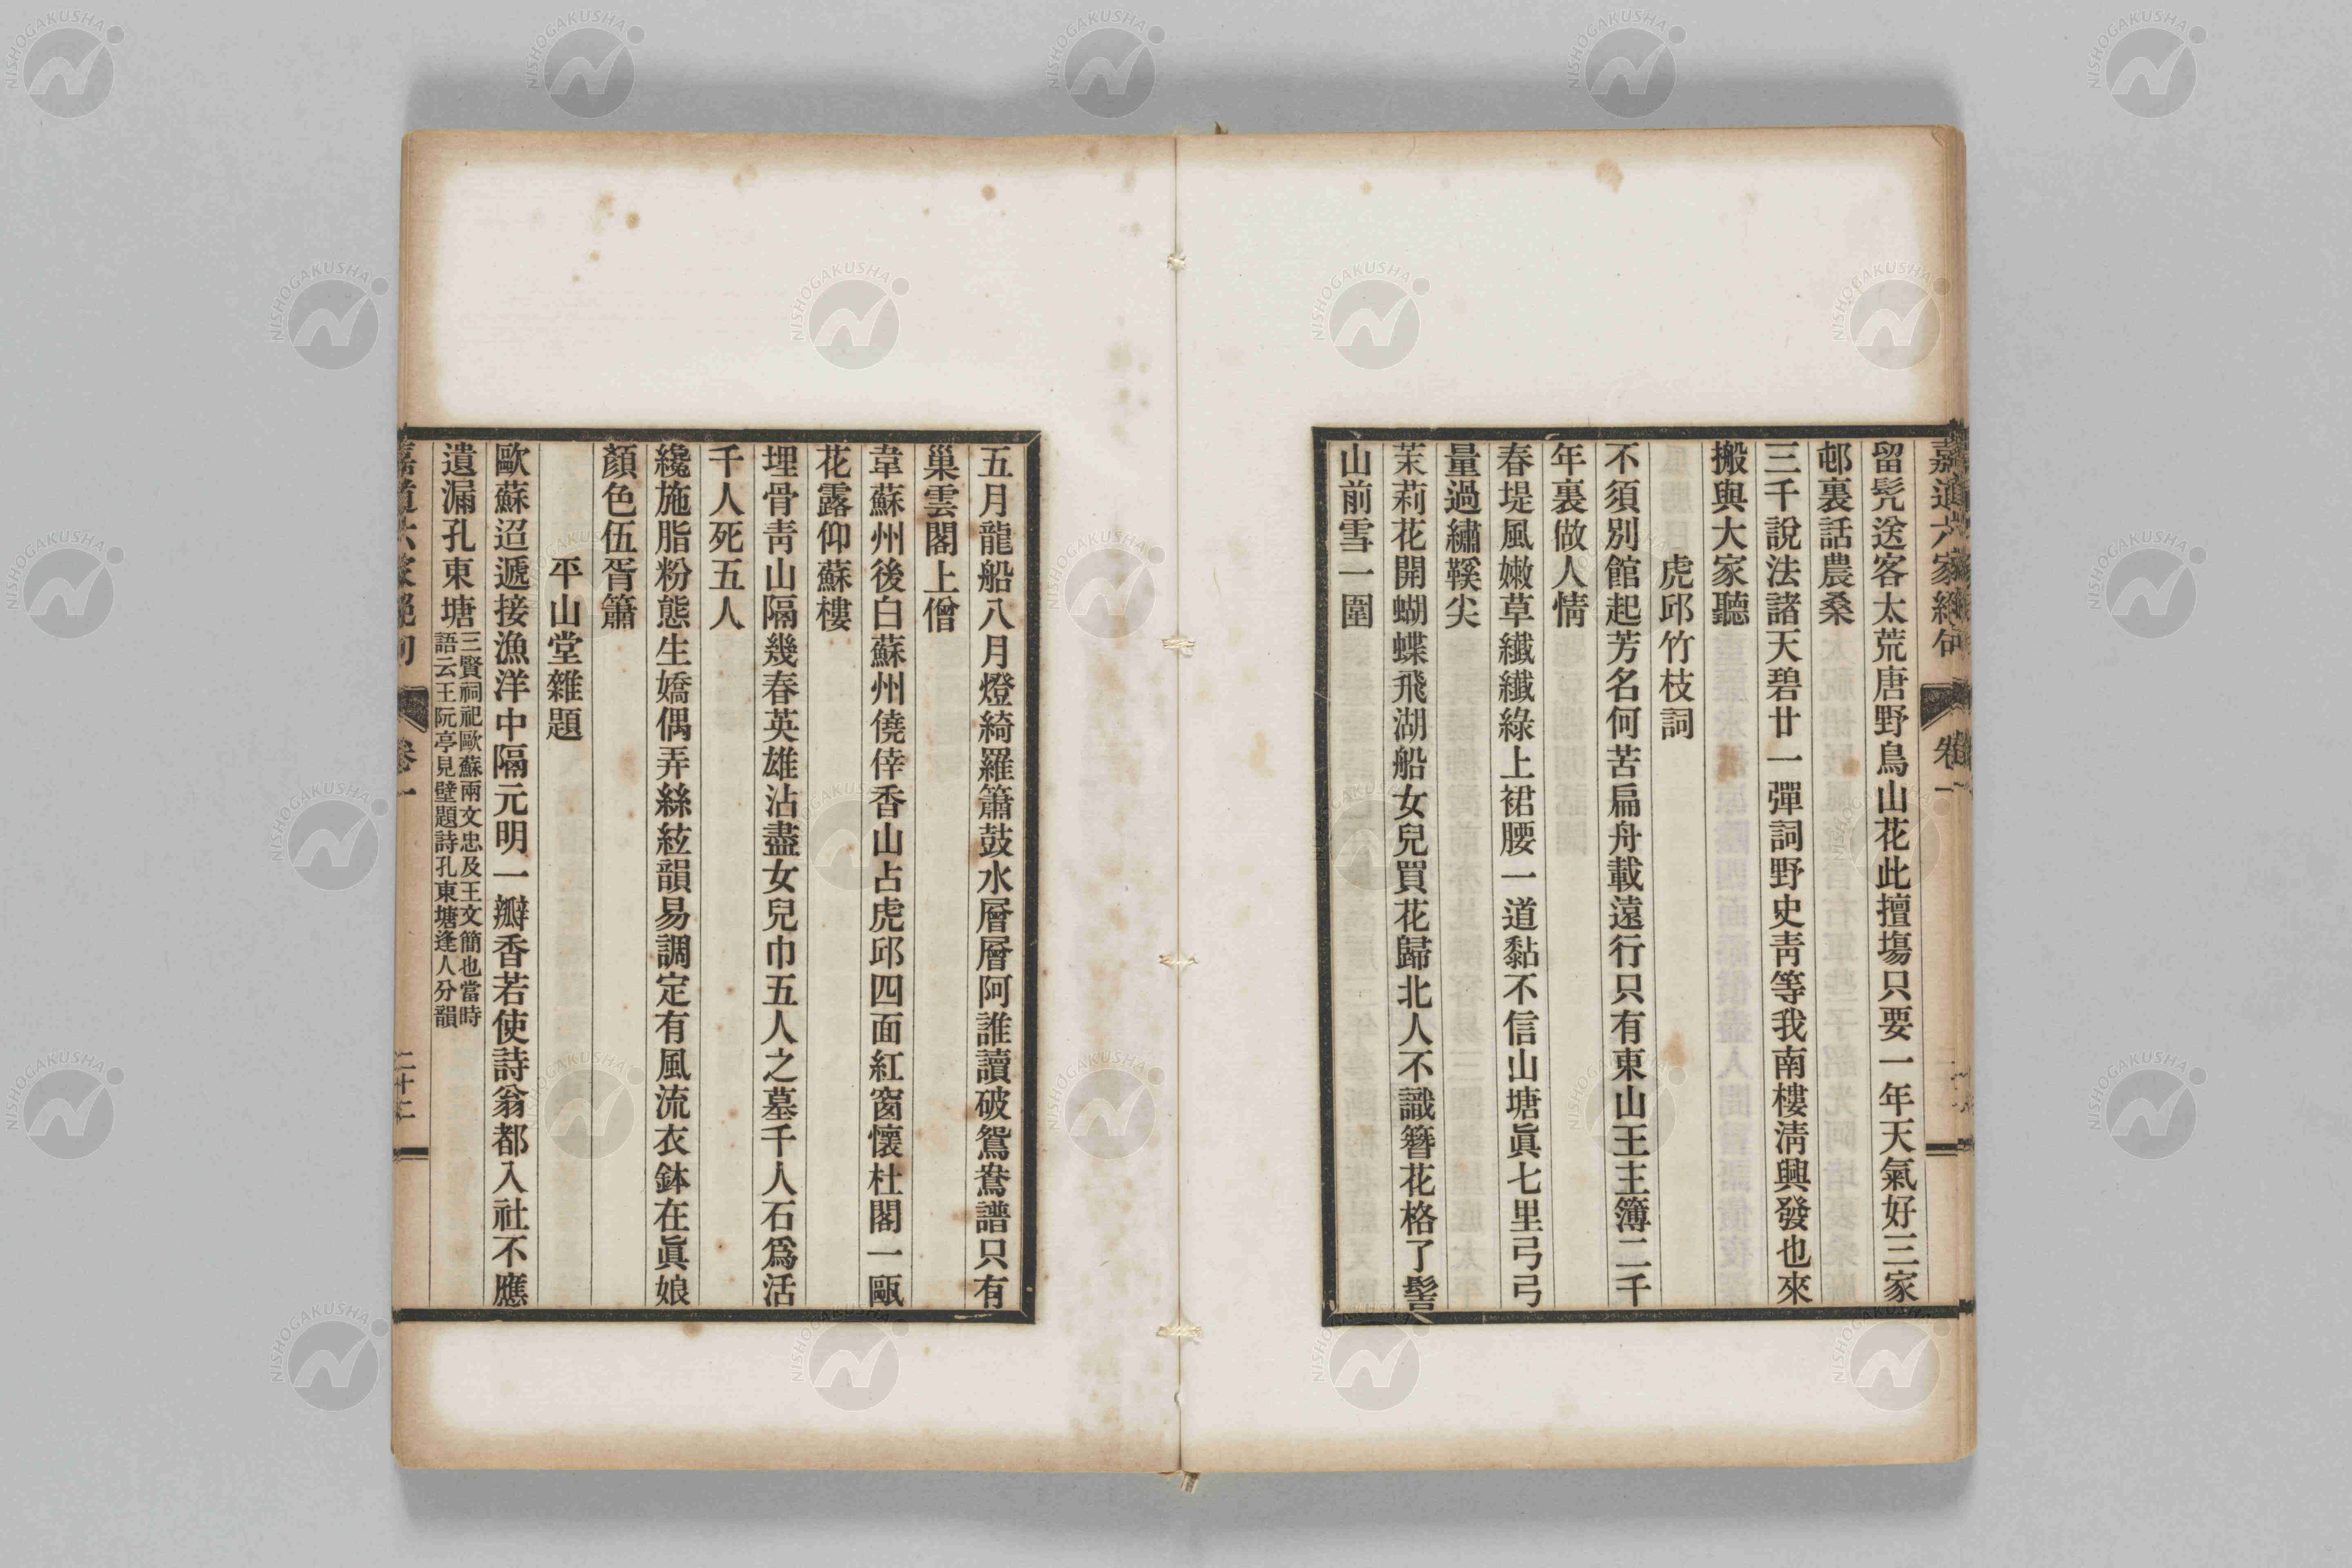 嘉道六家絕句
卷一
留髠送客太荒唐野鳥山花此擅塲只要一年天氣好三家
邨裏話農桑
三千說法諸天碧廿一彈詞野史靑等我南樓淸興發也來
搬與大家聽
虎邱竹枝詞
不須別館起芳名何苦扁舟載遠行只有東山王主簿二千
年裏做人情
春堤風嫩草纖纖綠上裙腰一道黏不信山塘眞七里弓弓
量過繡鞵尖
茉莉花開蝴蝶飛湖船女兒買花歸北人不識簪花格了鬟
山前雪一圍
五月龍船八月燈綺羅簫鼓水層層阿誰讀破鴛鴦譜只有
巢雲閣上僧
韋蘇州後白蘇州僥倖香山占虎邱四面紅窗懷杜閣一甌
花露仰蘇樓
埋骨靑山隔幾春英雄沾盡女兒巾五人之墓千人石爲活
千人死五人
纔施脂粉態生嬌偶弄絲絃韻易調定有風流衣鉢在眞娘
顏色伍胥簫
平山堂雜題
歐蘇迢遞接漁洋中隔元明一瓣香若使詩翁都入社不應
遺漏孔東塘
三賢祠祀歐蘇兩文忠及王文簡也當時
語云王阮亭見壁題詩孔東塘逢人分韻
嘉道六家絕句
卷一
二十二
NISHOGAKUSHA